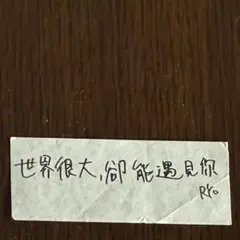 世界很大,卻能遇見你
Ryo